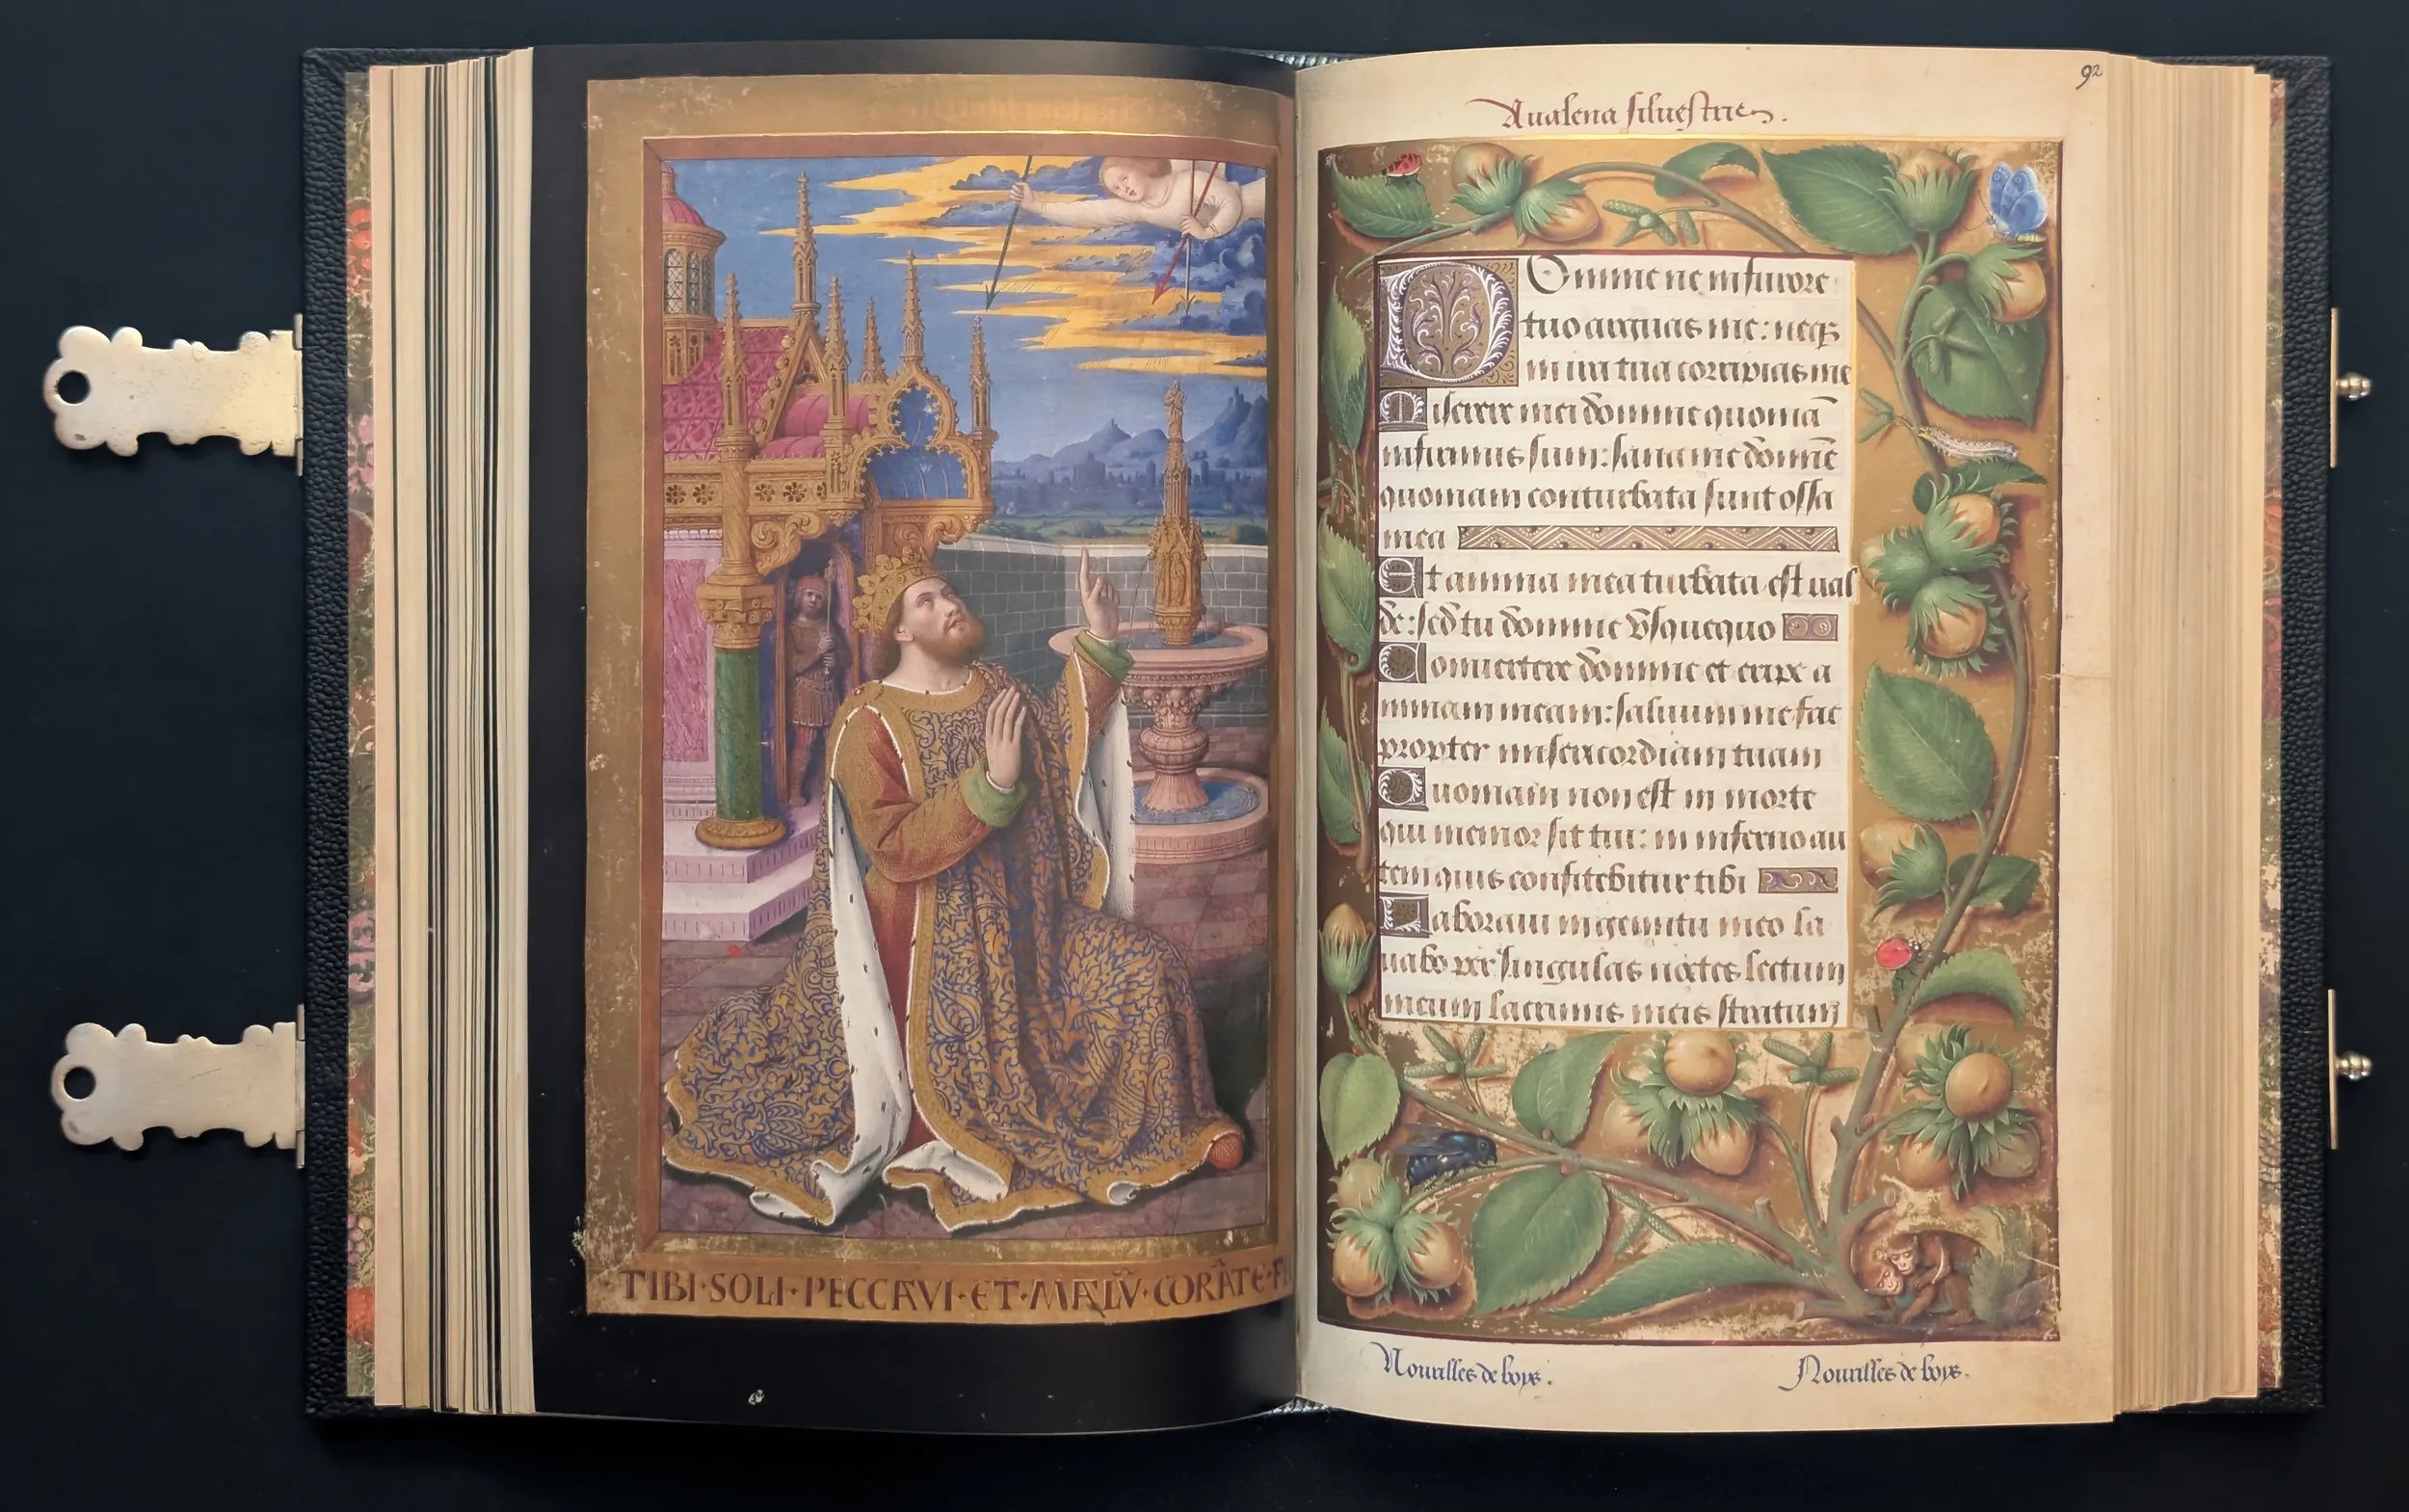 TIBI·SOLI·PECCAVI·ET·MALV̄·CORĀ·TE·F
92
Aualena siluestries.
Domine ne in furore
tuo arguas me: neqȝ
in ira tua corripias me
Miserere mei domine quoniā
infirmus sum: sana me domīe
quoniam conturbata sunt ossa
mea
Et anima mea turbata est ual
de: sed tu domine vsquequo
Conuertere domine et eripe a
nimam meam: saluum me fac
propter misericordiam tuam
Quoniam non est in morte
qui memor sit tui: in inferno au
tem quis confitebitur tibi
Laboraui in gemitu meo la
uabo per singulas noctes lectum
meum lacrimis meis stratum
Nouzilles de boys. Nouzilles de boys.